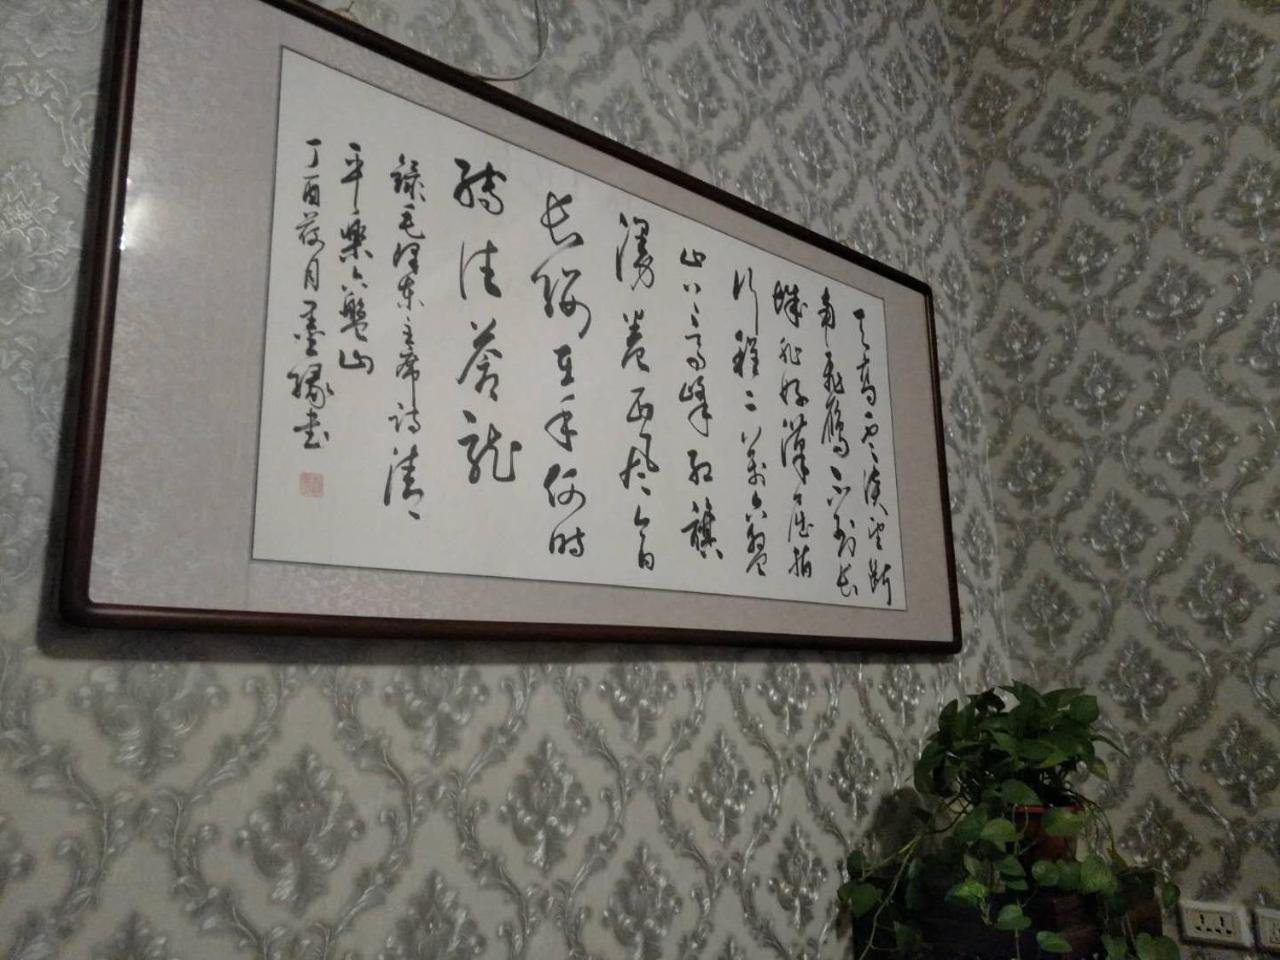 天高云淡望断
南飞雁不到长
城非好汉屈指
行程二万六盘
山上高峰红旗
漫卷西风今日
长缨在手何时
缚住苍龙
录毛泽东主席诗清
平乐六盘山
丁酉荷月墨缘书